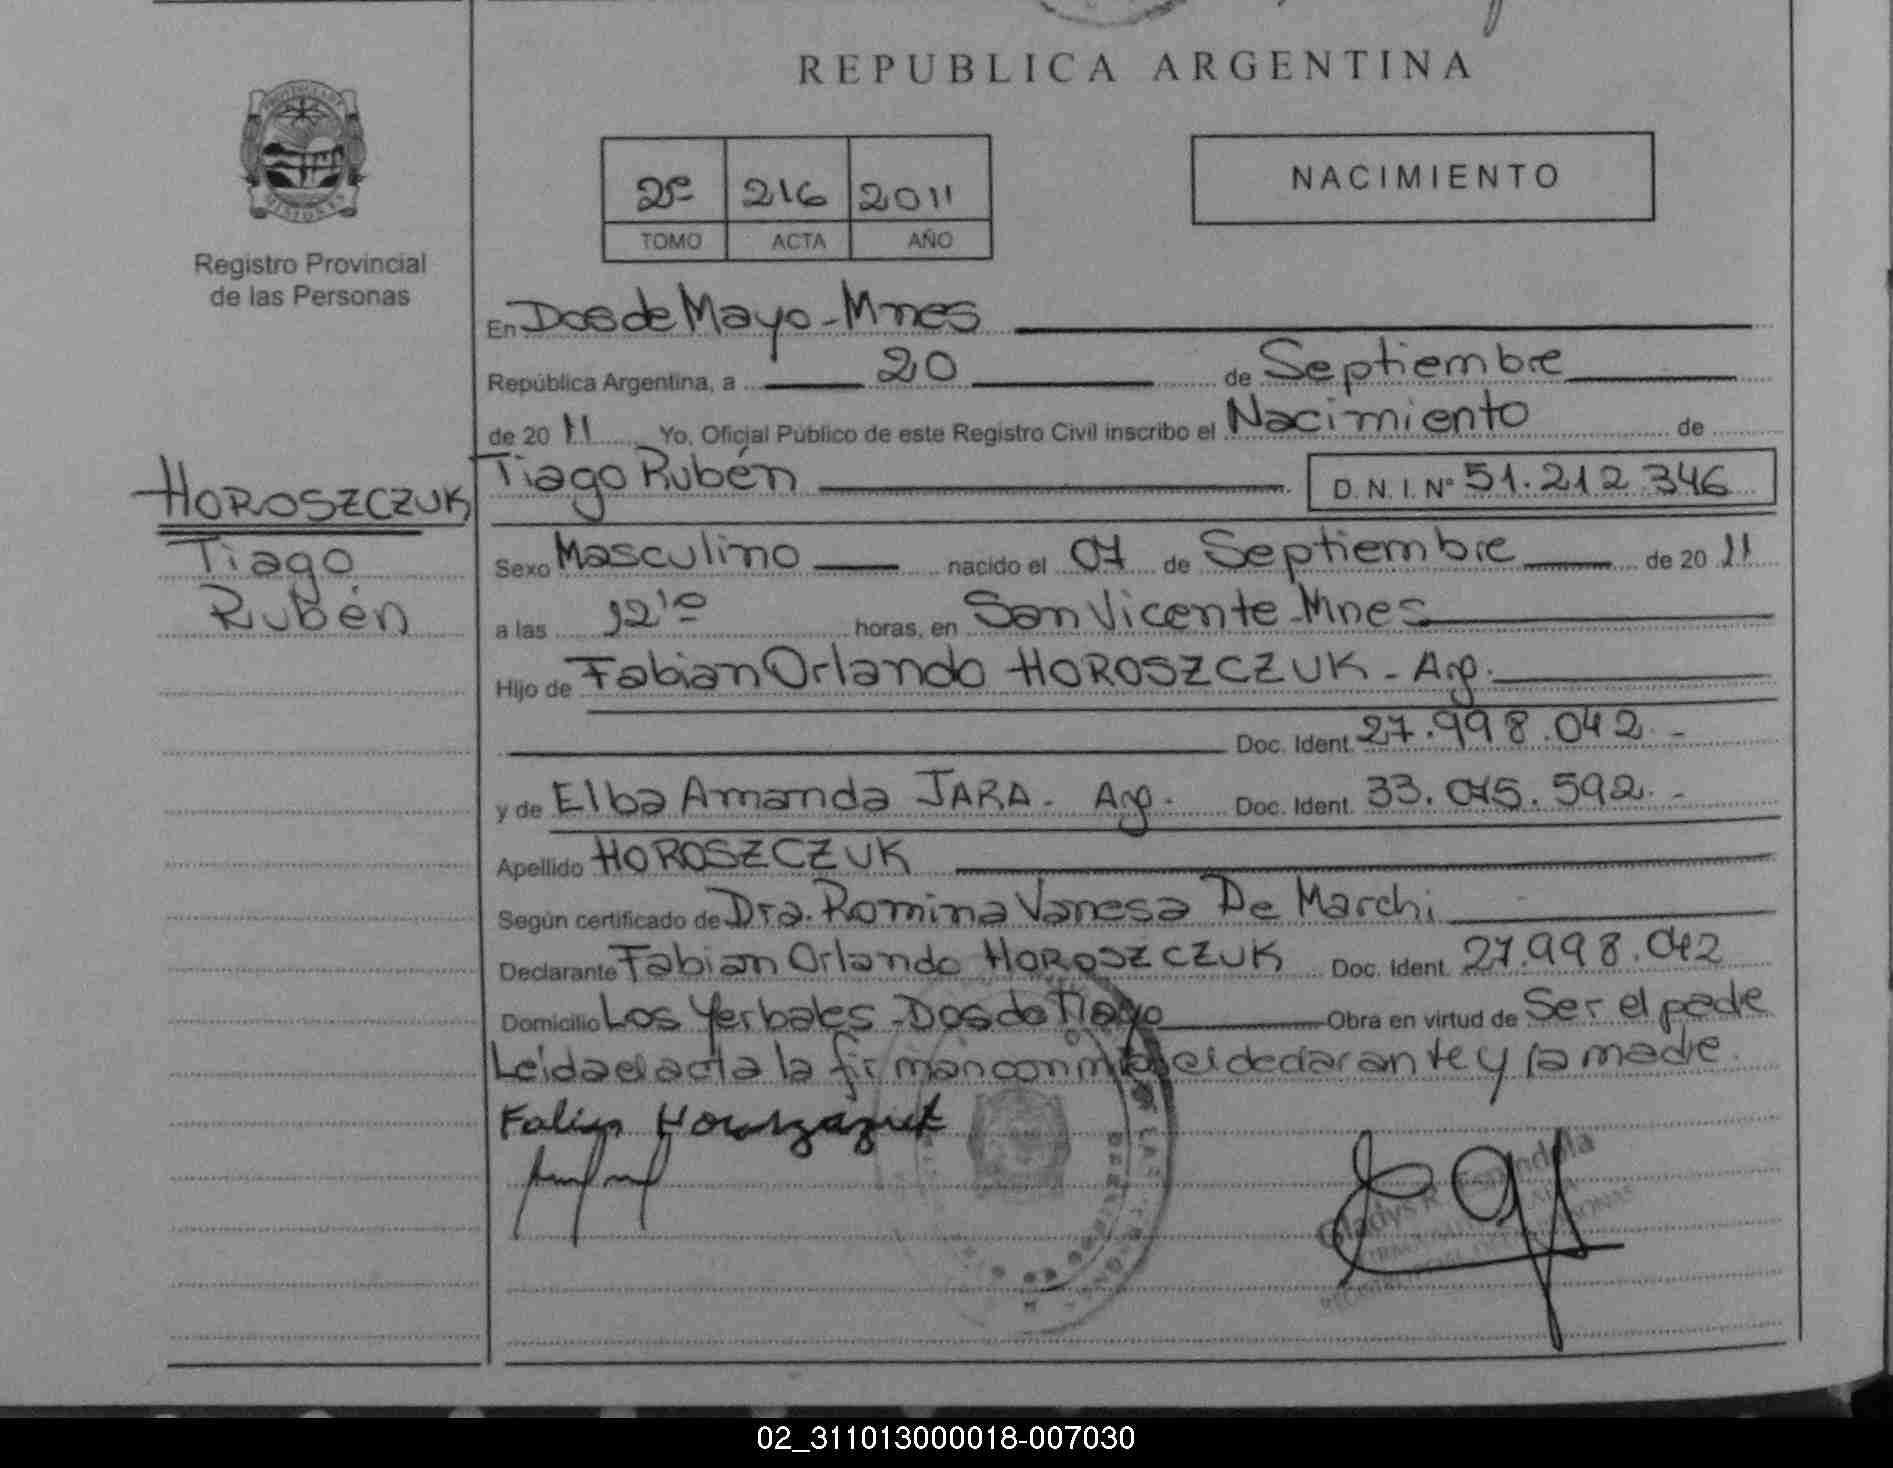 REPUBLICA ARGENTINA
2º 216 2011
TOMO ACTA AÑO
NACIMIENTO
Registro Provincial
de las Personas
En Dos de Mayo - Mnes
República Argentina, a 20 de Septiembre
de 20 11 Yo, Oficial Público de este Registro Civil inscribo el Nacimiento de
HOROSZCZUK
Tiago
Rubén
Tiago Rubén D.N.I. Nº 51.212.346
Sexo Masculino nacido el 07 de Septiembre de 20 11
a las 12'º horas, en San Vicente - Mnes
Hijo de Fabian Orlando HOROSZCZUK - Arg.
Doc. Ident. 27.998.042.-
y de Elba Amanda JARA. Arg. Doc. Ident. 33.075.592.-
Apellido HOROSZCZUK
Según certificado de Dra. Romina Vanesa De Marchi
Declarante Fabian Orlando HOROSZCZUK Doc. Ident. 27.998.042
Domicilio Los Yerbales - Dos de Mayo Obra en virtud de Ser el padre
Leída el acta la firman conmigo el declarante y la madre.
Gladys R. Espindola
02_311013000018-007030